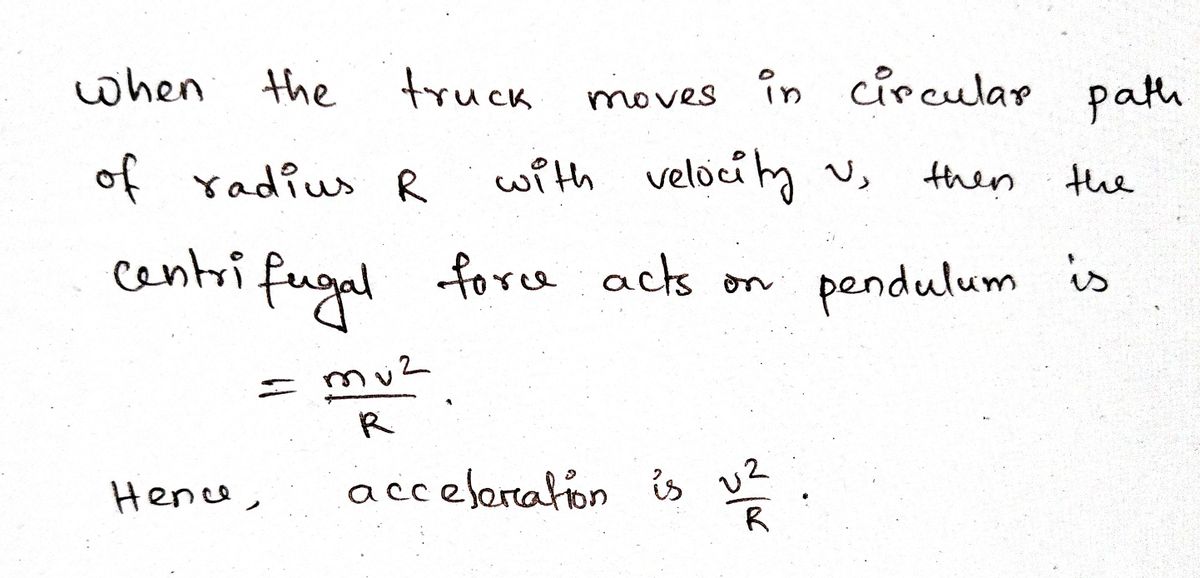 when the truck moves in circular path
of radius R with velocity v, then the
centrifugal force acts on pendulum is
= mv²/R.
Hence, acceleration is v²/R.